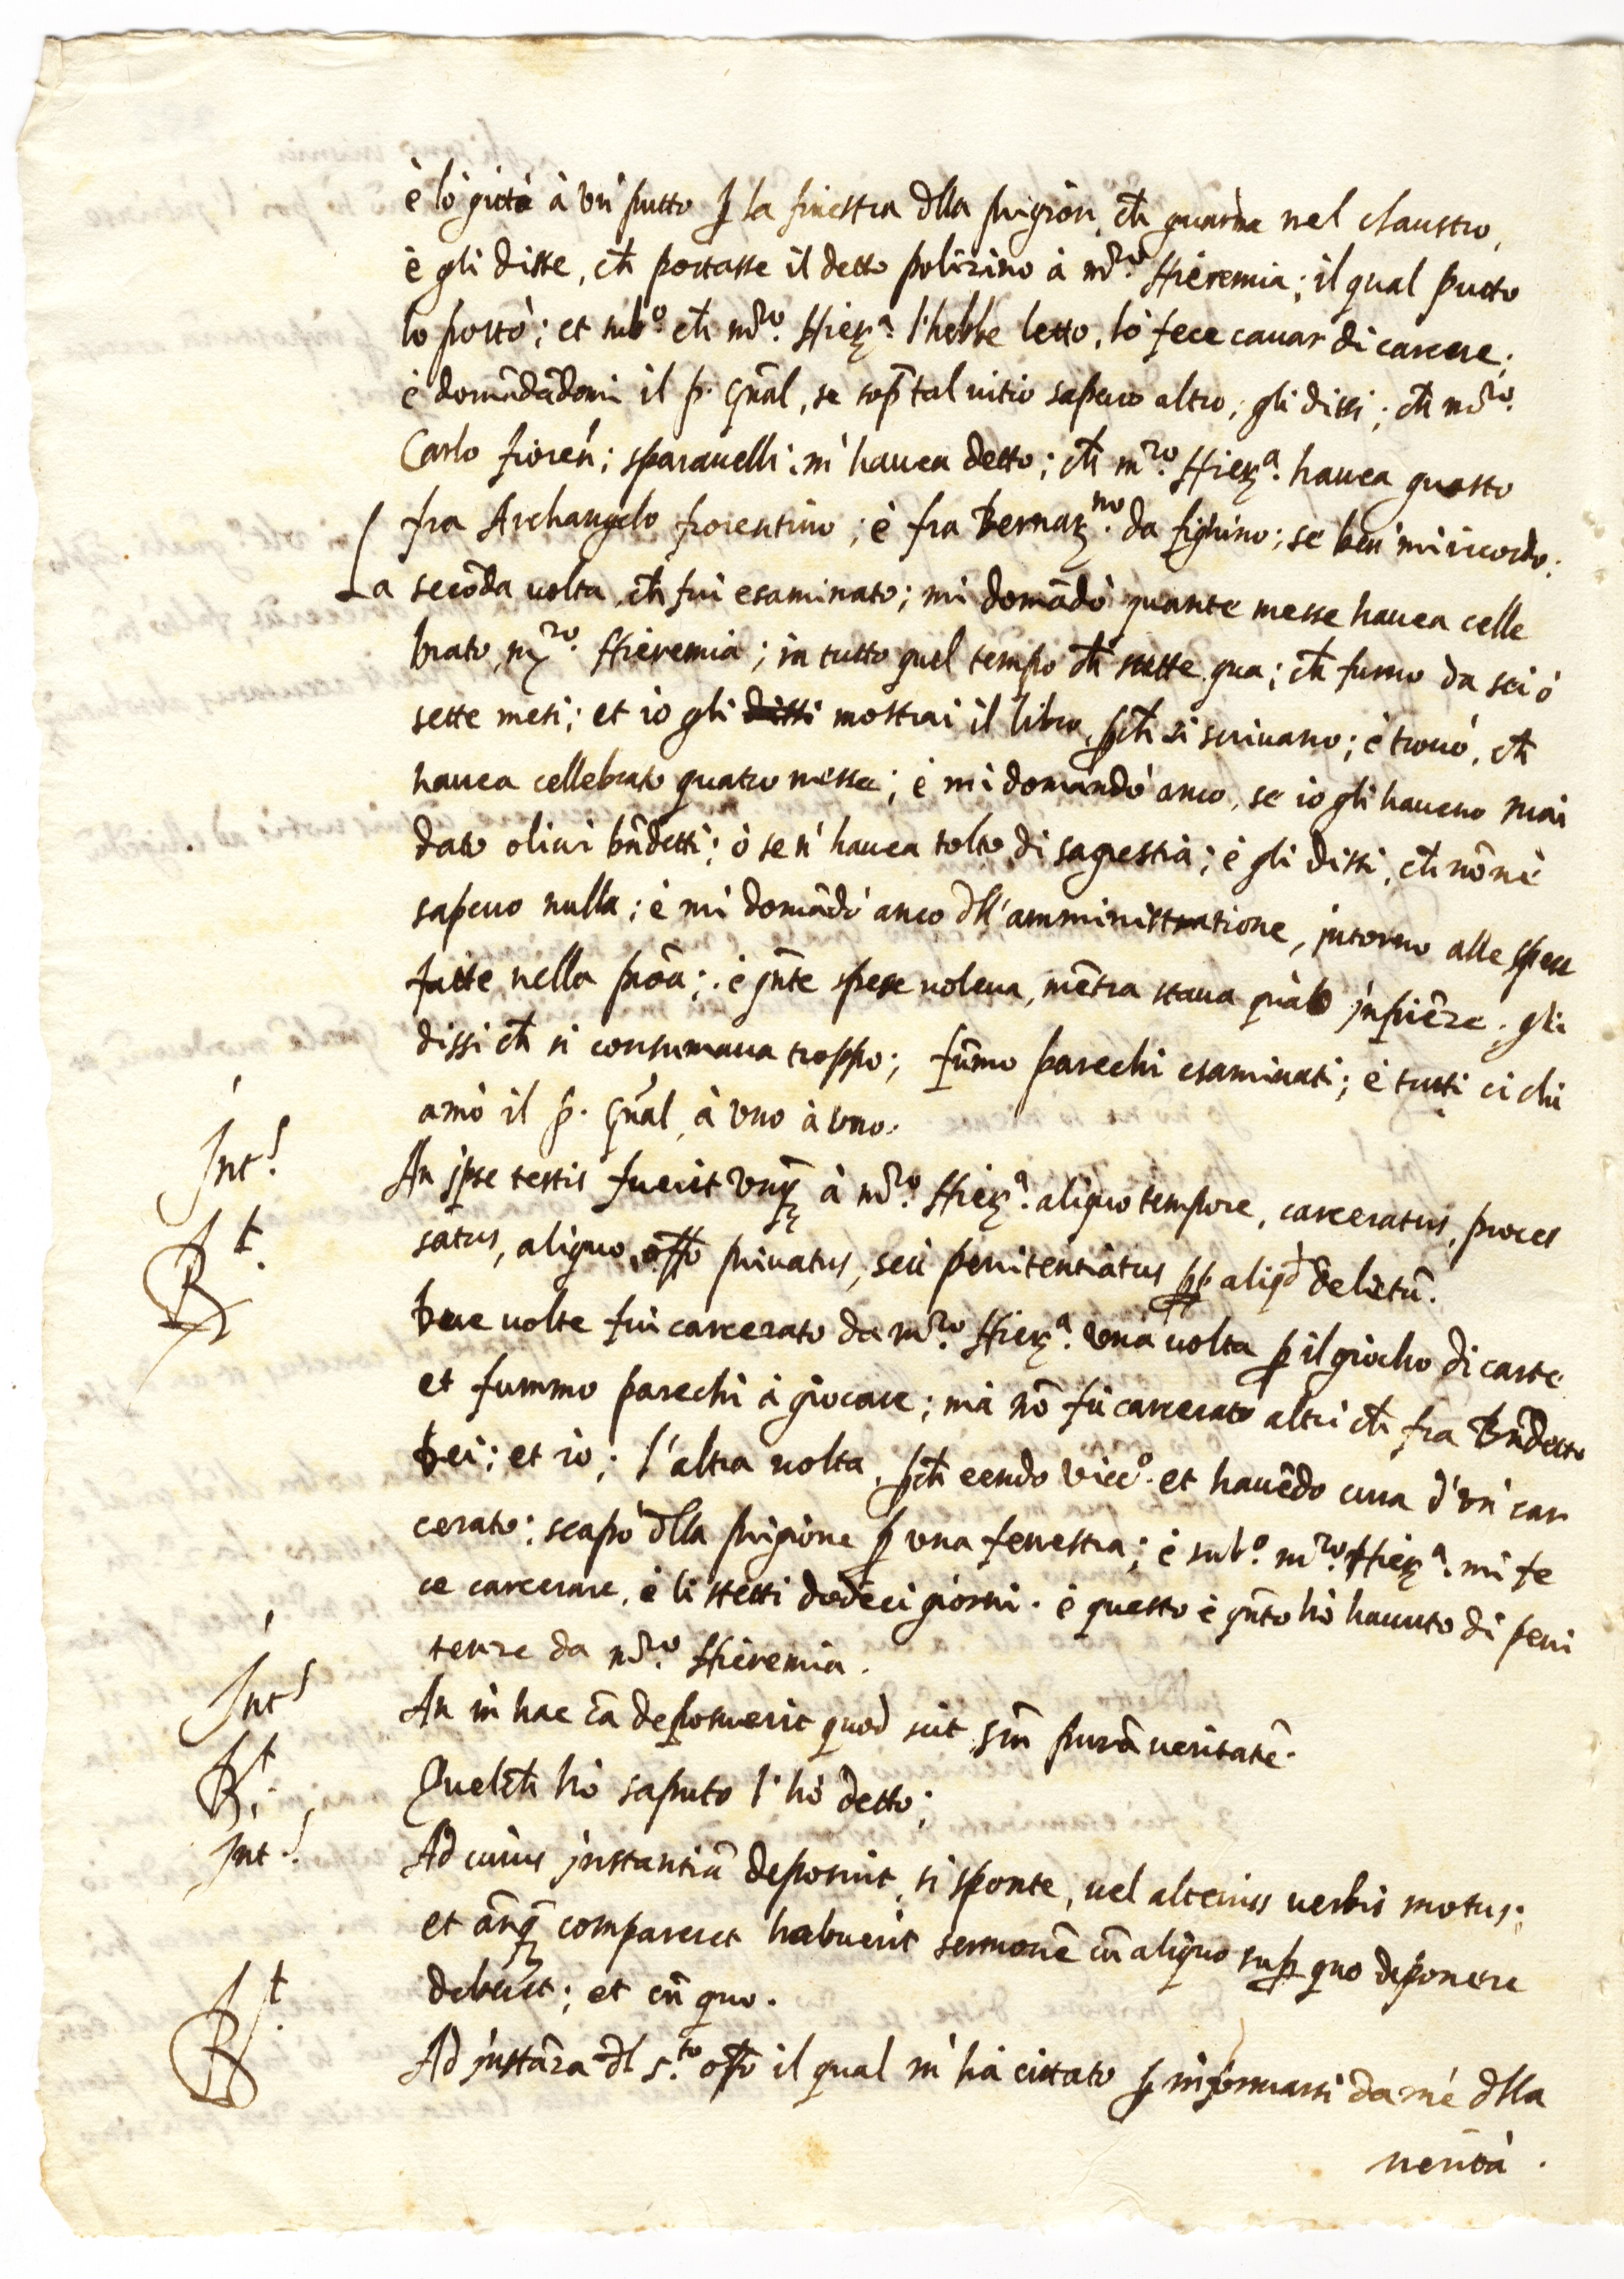 è lo gittò à un' putto p la finestra dlla prigion, ch guarda nel claustro,
è gli disse, ch portasse il detto polizino à mro. Hieremia; il qual putto
lo portò; et subo. ch mro. Hiera. l'hebbe letto, lo fece cavar di carcere;
è domādādomi il p. gnāl, se sop tal uitio sapeuo altro; gli dissi; ch mro.
Carlo fioren; sparauelli; m' hauea detto; ch mro. Hiera. hauea guasto
fra Archangelo fiorentino; è fra Bernarno. da fighino; se ben' mi ricordo:
La secōda uolta, ch fui esaminato; mi domādò quante messe hauea celle
brato, mro. Hieremia; in tutto quel tempo ch stette qua; ch furno da sei ò
sette mesi; et io gli dissi mostrai il libro, pch si scriuano; è trouò, ch
hauea cellebrato quatro messe; è mi domandò anco, se io gli haueuo mai
dato oliui bndetti; ò se n' hauea tolto di sagrestia; è gli dissi, ch nō nè
sapeuo nulla; è mi domādò anco dll' amministratione, intorno alle spese
fatte nella proā; è qnte spese uoleua, mētra staua quà in firēze. gli
dissi ch si consumaua troppo; fūmo parechi esaminati; è tutti ci chi
amò il p. gnāl, à uno à uno.
Int.s An ipse testis fuerit unq à mro. Hiera. aliquo tempore, carceratus, proces
satus, aliquo offo priuatus, seù penitentiatus pp aliqd delictū.
R.t Due uolte fui carcerato da mro. Hiera. una uolta p il giocho di carte
et fummo parechi à giocare; mà nō fù carcerato altri ch fra Bndetto
Dei; et io; l'altra uolta, pch eendo Vicco. et hauēdo cura d' un' car
cerato; scapò dlla prigione p una fenestra; è subo. mro. Hiera. mi fe
ce carcerare, è li stetti dodeci giorni. è questo è qnto hò hauuto di peni
tenze da mro. Hieremia.
Int.s An in hac cā deposuerit quod scit, scm purā ueritatē.
R.t Quelch hò saputo l' hò detto;
Int.s Ad cuius instantiā deposuit, si sponte, uel alterius uerbis motus;
et ānq compareret habuerit sermonē cū aliquo sup quo deponere
deberet; et cū quo.
R.t Ad instāza dl s.to offo il qual m' hà cittato p informarsi da mè dlla
uerità.